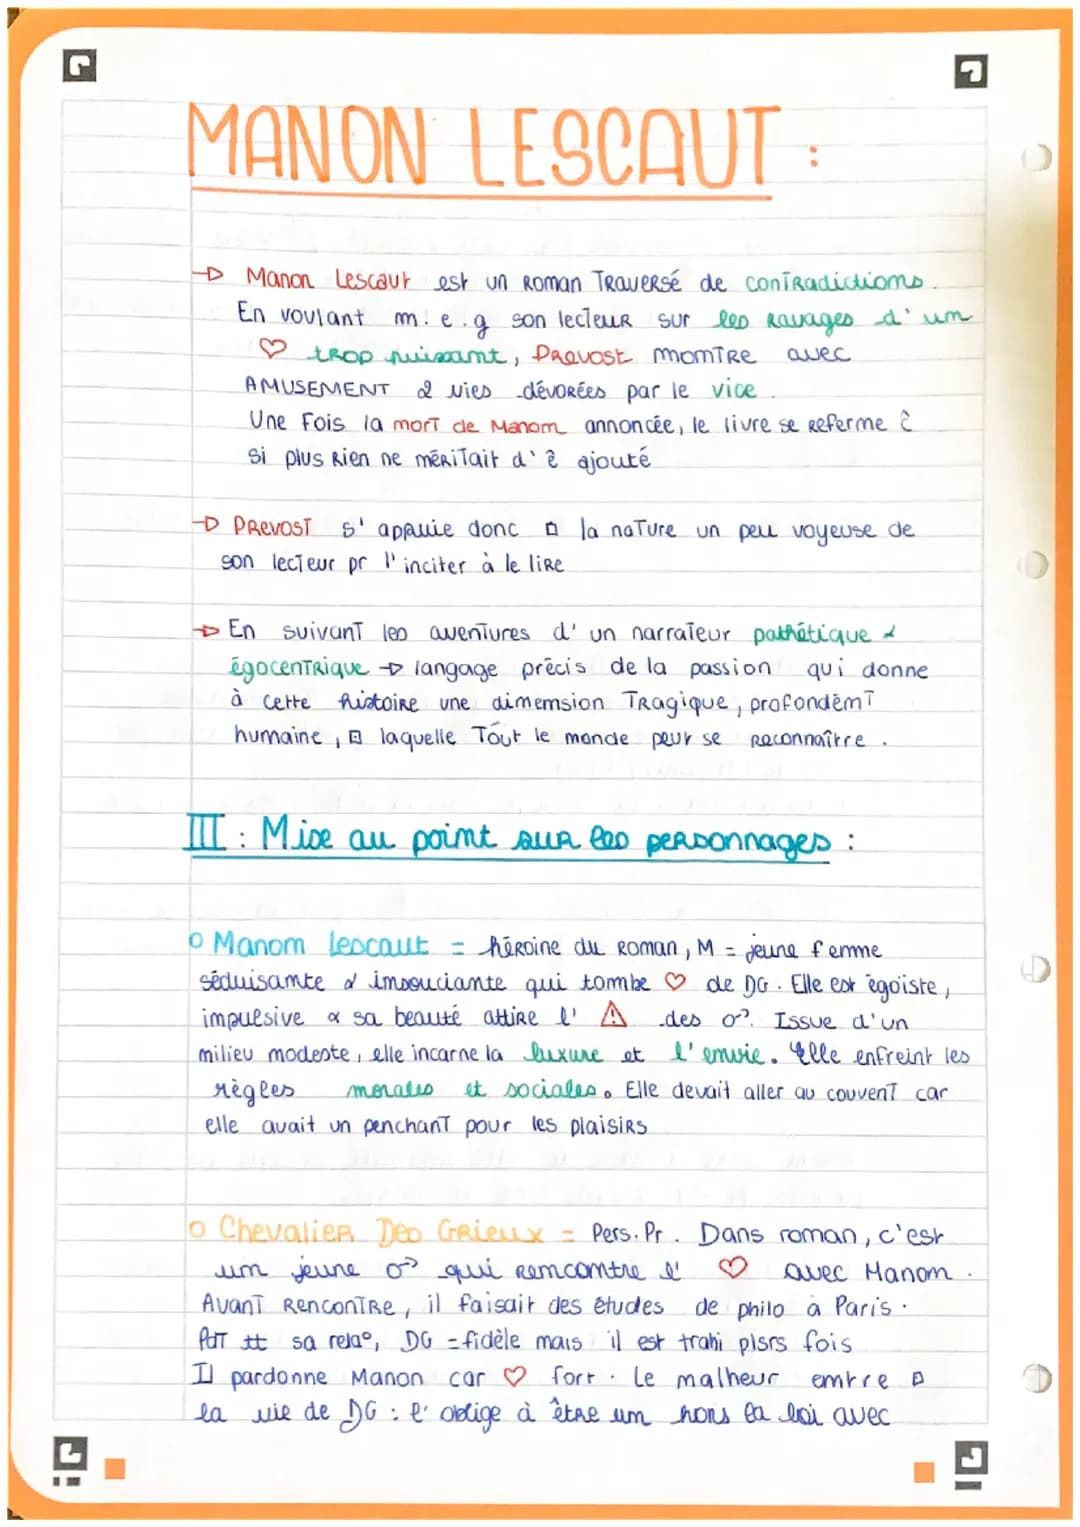 MANON LESCAUT :
→ Manon Lescaut est un roman traversé de contradictions.
En voulant m. e. g son lecteur sur les ravages d'un
♡ trop puissant, Prevost montre avec
AMUSEMENT 2 vies dévorées par le vice.
Une fois la mort de Manon annoncée, le livre se referme ĉ
si plus rien ne méritait d'ê ajouté
→ Prevost s'appuie donc la nature un peu voyeuse de
son lecteur pr l'inciter à le lire
→ En suivant les aventures d'un narrateur pathétique &
égocentrique → langage précis de la passion qui donne
à cette histoire une dimension tragique, profondémt
humaine, laquelle Tout le monde peut se reconnaître.
III : Mise au point sur les personnages :
o Manon Lescaut = héroine du roman, M = jeune femme
séduisante & insouciante qui tombe ♡ de DG. Elle est égoïste,
impulsive & sa beauté attire l' ⚠ des ♂. Issue d'un
milieu modeste, elle incarne la luxure et l'envie. Elle enfreint les
règles morales et sociales. Elle devait aller au couvent car
elle avait un penchant pour les plaisirs
o Chevalier Des Grieux = Pers. Pr. Dans roman, c'est
un jeune ♂ qui rencontre l' ♡ avec Manon.
Avant rencontre, il faisait des études de philo à Paris.
Pdt tt sa rela°, DG = fidèle mais il est trahi plsrs fois
Il pardonne Manon car ♡ fort. Le malheur entre
la vie de DG : l'oblige à être un hors la loi avec